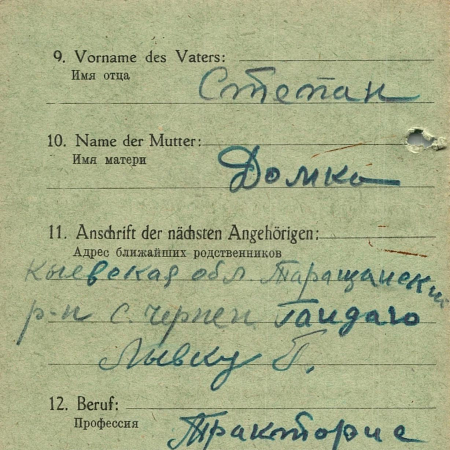 9. Vorname des Vaters:
Имя отца
Степан
10. Name der Mutter:
Имя матери
Домка
11. Anschrift der nächsten Angehörigen:
Адрес ближайших родственников
Кыевская обл Таращанский
р-н с. Черпен Гайдаго
Лывку Г.
12. Beruf:
Профессия
Тракторис